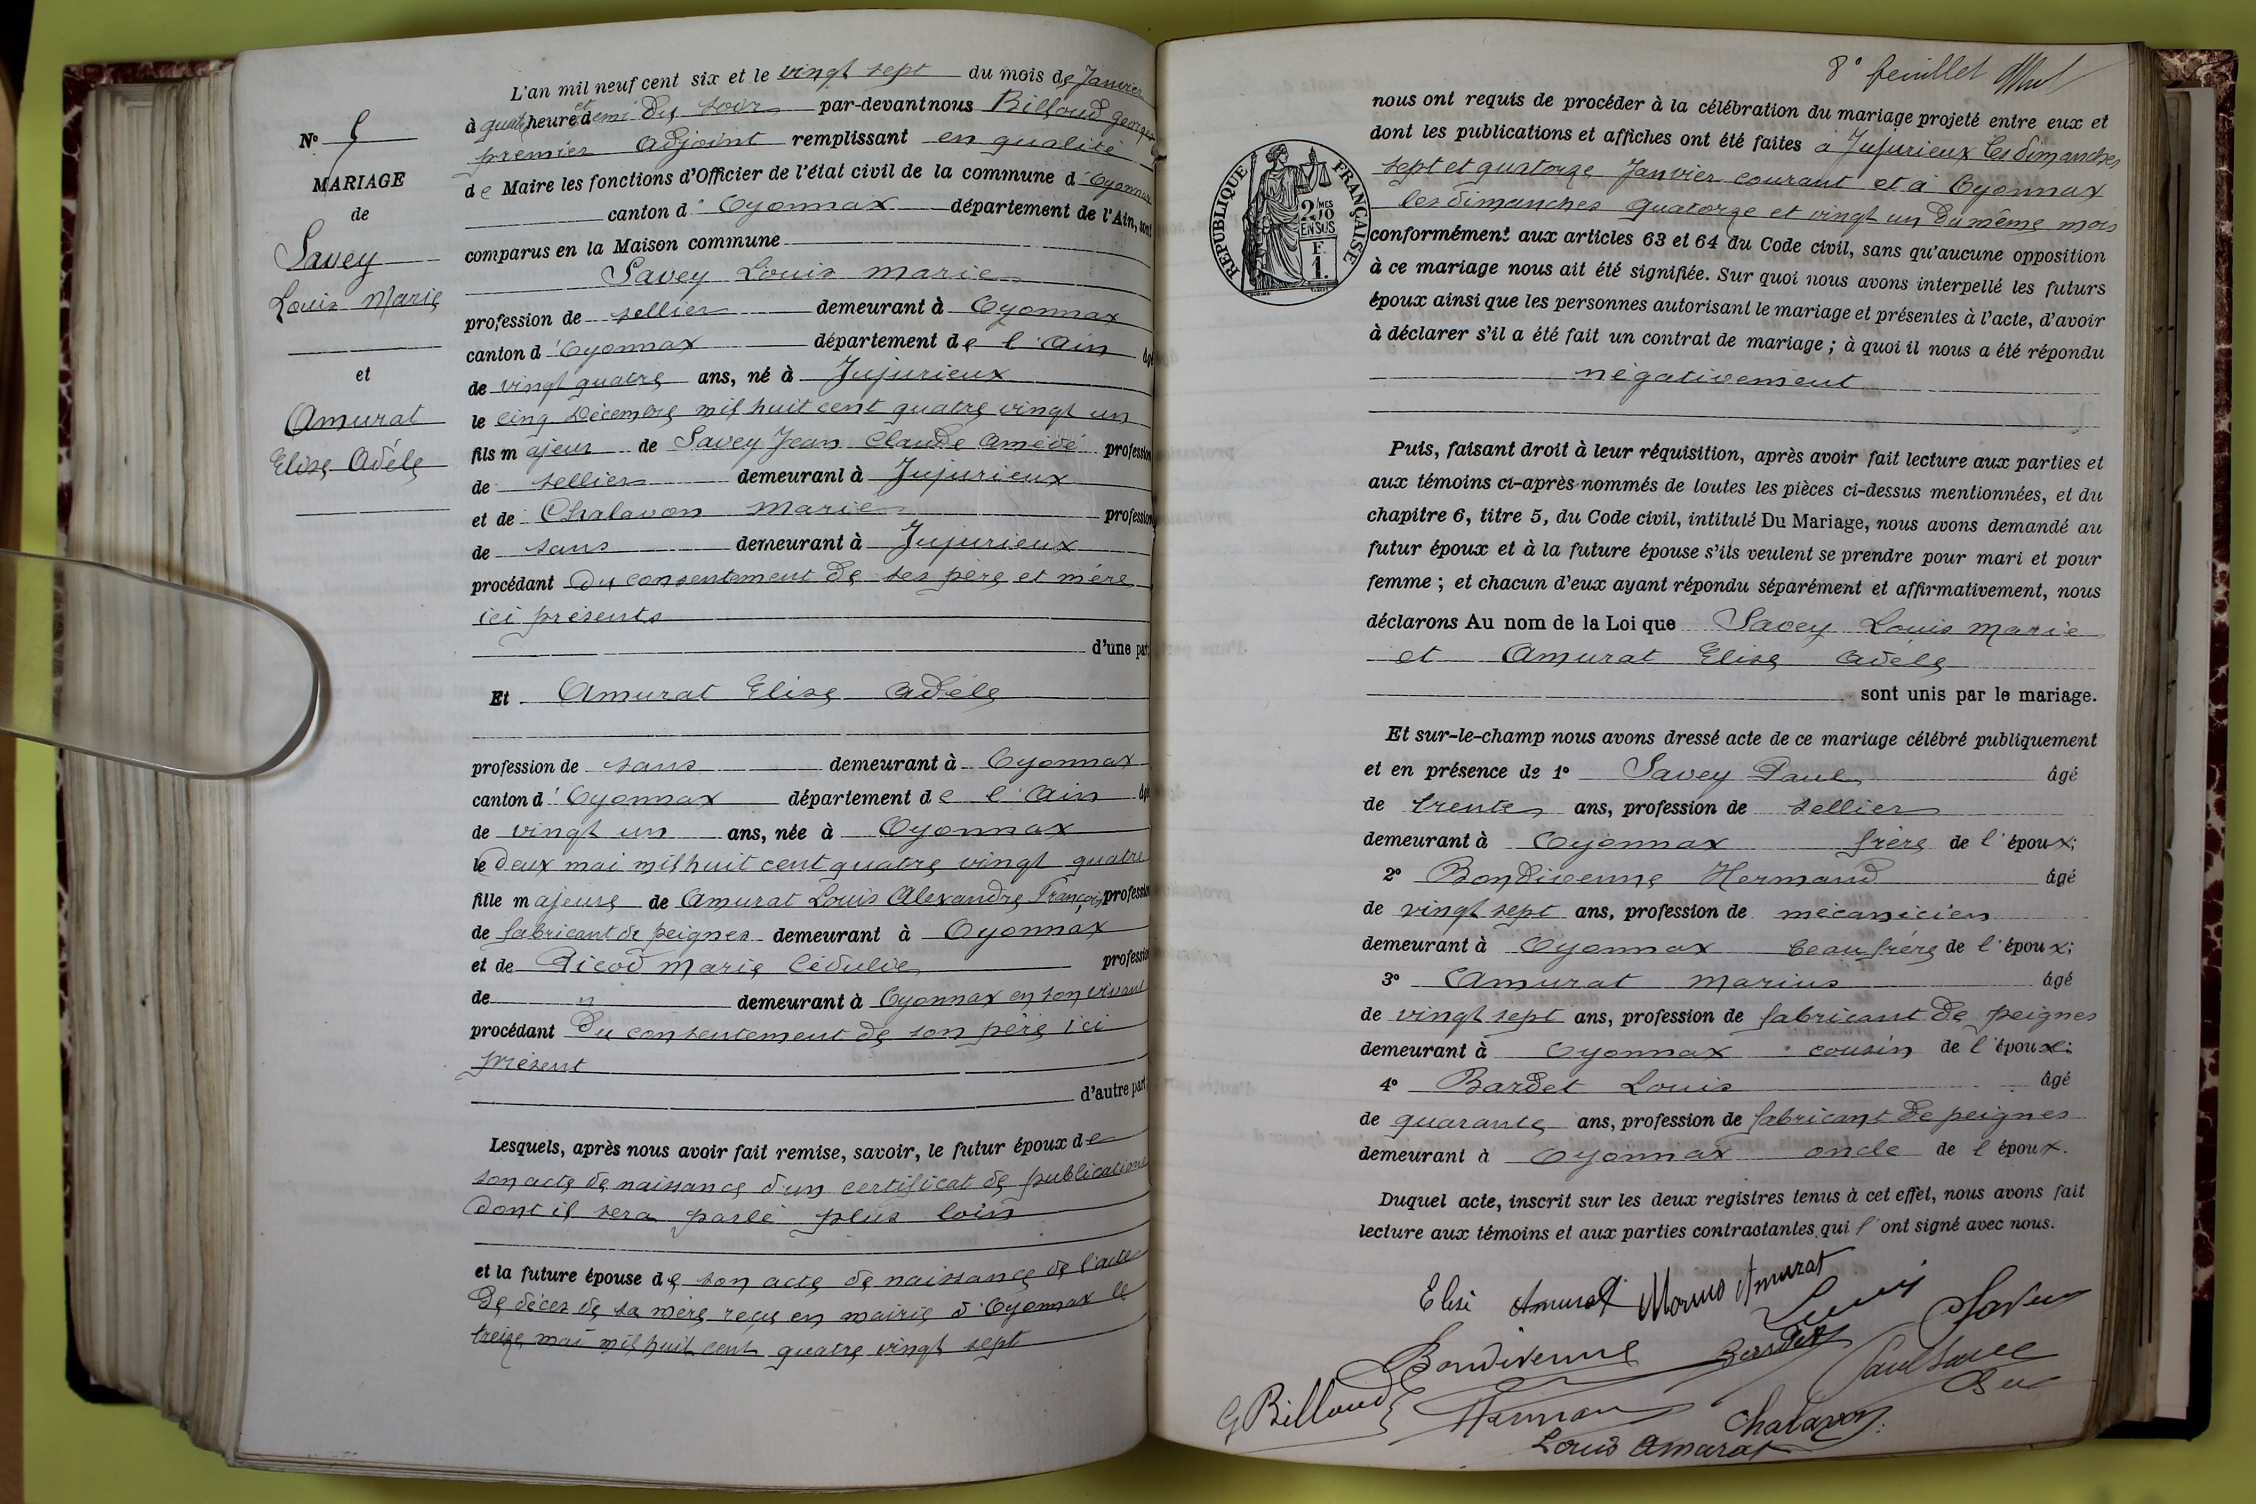 N° 5
MARIAGE
de
Savey
Louis Marie
et
Amurat
Elise Adèle
L'an mil neuf cent six et le vingt sept du mois de Janvier
à quatre heure et demi du soir par-devant nous Billoud Georges
premier adjoint remplissant en qualité
de Maire les fonctions d'Officier de l'état civil de la commune d'Oyonnax
canton d'Oyonnax département de l'Ain, sont
comparus en la Maison commune
Savey Louis Marie
profession de sellier demeurant à Oyonnax
canton d'Oyonnax département de l'Ain âgé
de vingt quatre ans, né à Jujurieux
le cinq Décembre mil huit cent quatre vingt un
fils majeur de Savey Jean Claude Amédé profession
de sellier demeurant à Jujurieux
et de Chalavon Marie profession
de sans demeurant à Jujurieux
procédant du consentement de ses père et mère
ici présents
d'une part,
Et Amurat Elise Adèle
profession de sans demeurant à Oyonnax
canton d'Oyonnax département de l'Ain âgée
de vingt un ans, née à Oyonnax
le deux mai mil huit cent quatre vingt quatre
fille majeure de Amurat Louis Alexandre François, profession
de fabricant de peignes demeurant à Oyonnax
et de Picod Marie Cédulie profession
de " demeurant à Oyonnax en son vivant
procédant du consentement de son père ici
présent
d'autre part
Lesquels, après nous avoir fait remise, savoir, le futur époux de
son acte de naissance d'un certificat de publications
dont il sera parlé plus loin
et la future épouse de son acte de naissance de l'acte
de décès de sa mère reçu en mairie d'Oyonnax le
treize mai mil huit cent quatre vingt sept
8° feuillet
nous ont requis de procéder à la célébration du mariage projeté entre eux et
dont les publications et affiches ont été faites à Jujurieux les dimanches
sept et quatorze Janvier courant et à Oyonnax
les dimanches quatorze et vingt un du même mois
conformément aux articles 63 et 64 du Code civil, sans qu'aucune opposition
à ce mariage nous ait été signifiée. Sur quoi nous avons interpellé les futurs
époux ainsi que les personnes autorisant le mariage et présentes à l'acte, d'avoir
à déclarer s'il a été fait un contrat de mariage ; à quoi il nous a été répondu
négativement
RÉPUBLIQUE FRANÇAISE
2/10 MES
EN SUS
F.
1.
Puis, faisant droit à leur réquisition, après avoir fait lecture aux parties et
aux témoins ci-après nommés de toutes les pièces ci-dessus mentionnées, et du
chapitre 6, titre 5, du Code civil, intitulé Du Mariage, nous avons demandé au
futur époux et à la future épouse s'ils veulent se prendre pour mari et pour
femme ; et chacun d'eux ayant répondu séparément et affirmativement, nous
déclarons Au nom de la Loi que Savey Louis Marie
et Amurat Elise Adèle
sont unis par le mariage.
Et sur-le-champ nous avons dressé acte de ce mariage célébré publiquement
et en présence de 1° Savey Paul âgé
de trente ans, profession de sellier
demeurant à Oyonnax frère de l'époux;
2° Bondivenne Hermand âgé
de vingt sept ans, profession de mécanicien
demeurant à Oyonnax beau frère de l'époux;
3° Amurat Marius âgé
de vingt sept ans, profession de fabricant de peignes
demeurant à Oyonnax cousin de l'épouse;
4° Bardet Louis âgé
de quarante ans, profession de fabricant de peignes
demeurant à Oyonnax oncle de l'époux.
Duquel acte, inscrit sur les deux registres tenus à cet effet, nous avons fait
lecture aux témoins et aux parties contractantes qui l'ont signé avec nous.
Elise Amurat Marius Amurat
Louis Savey
Bondivenne Bardet
Paul Savey
G Billoud Herman
Chalavon
Louis Amurat